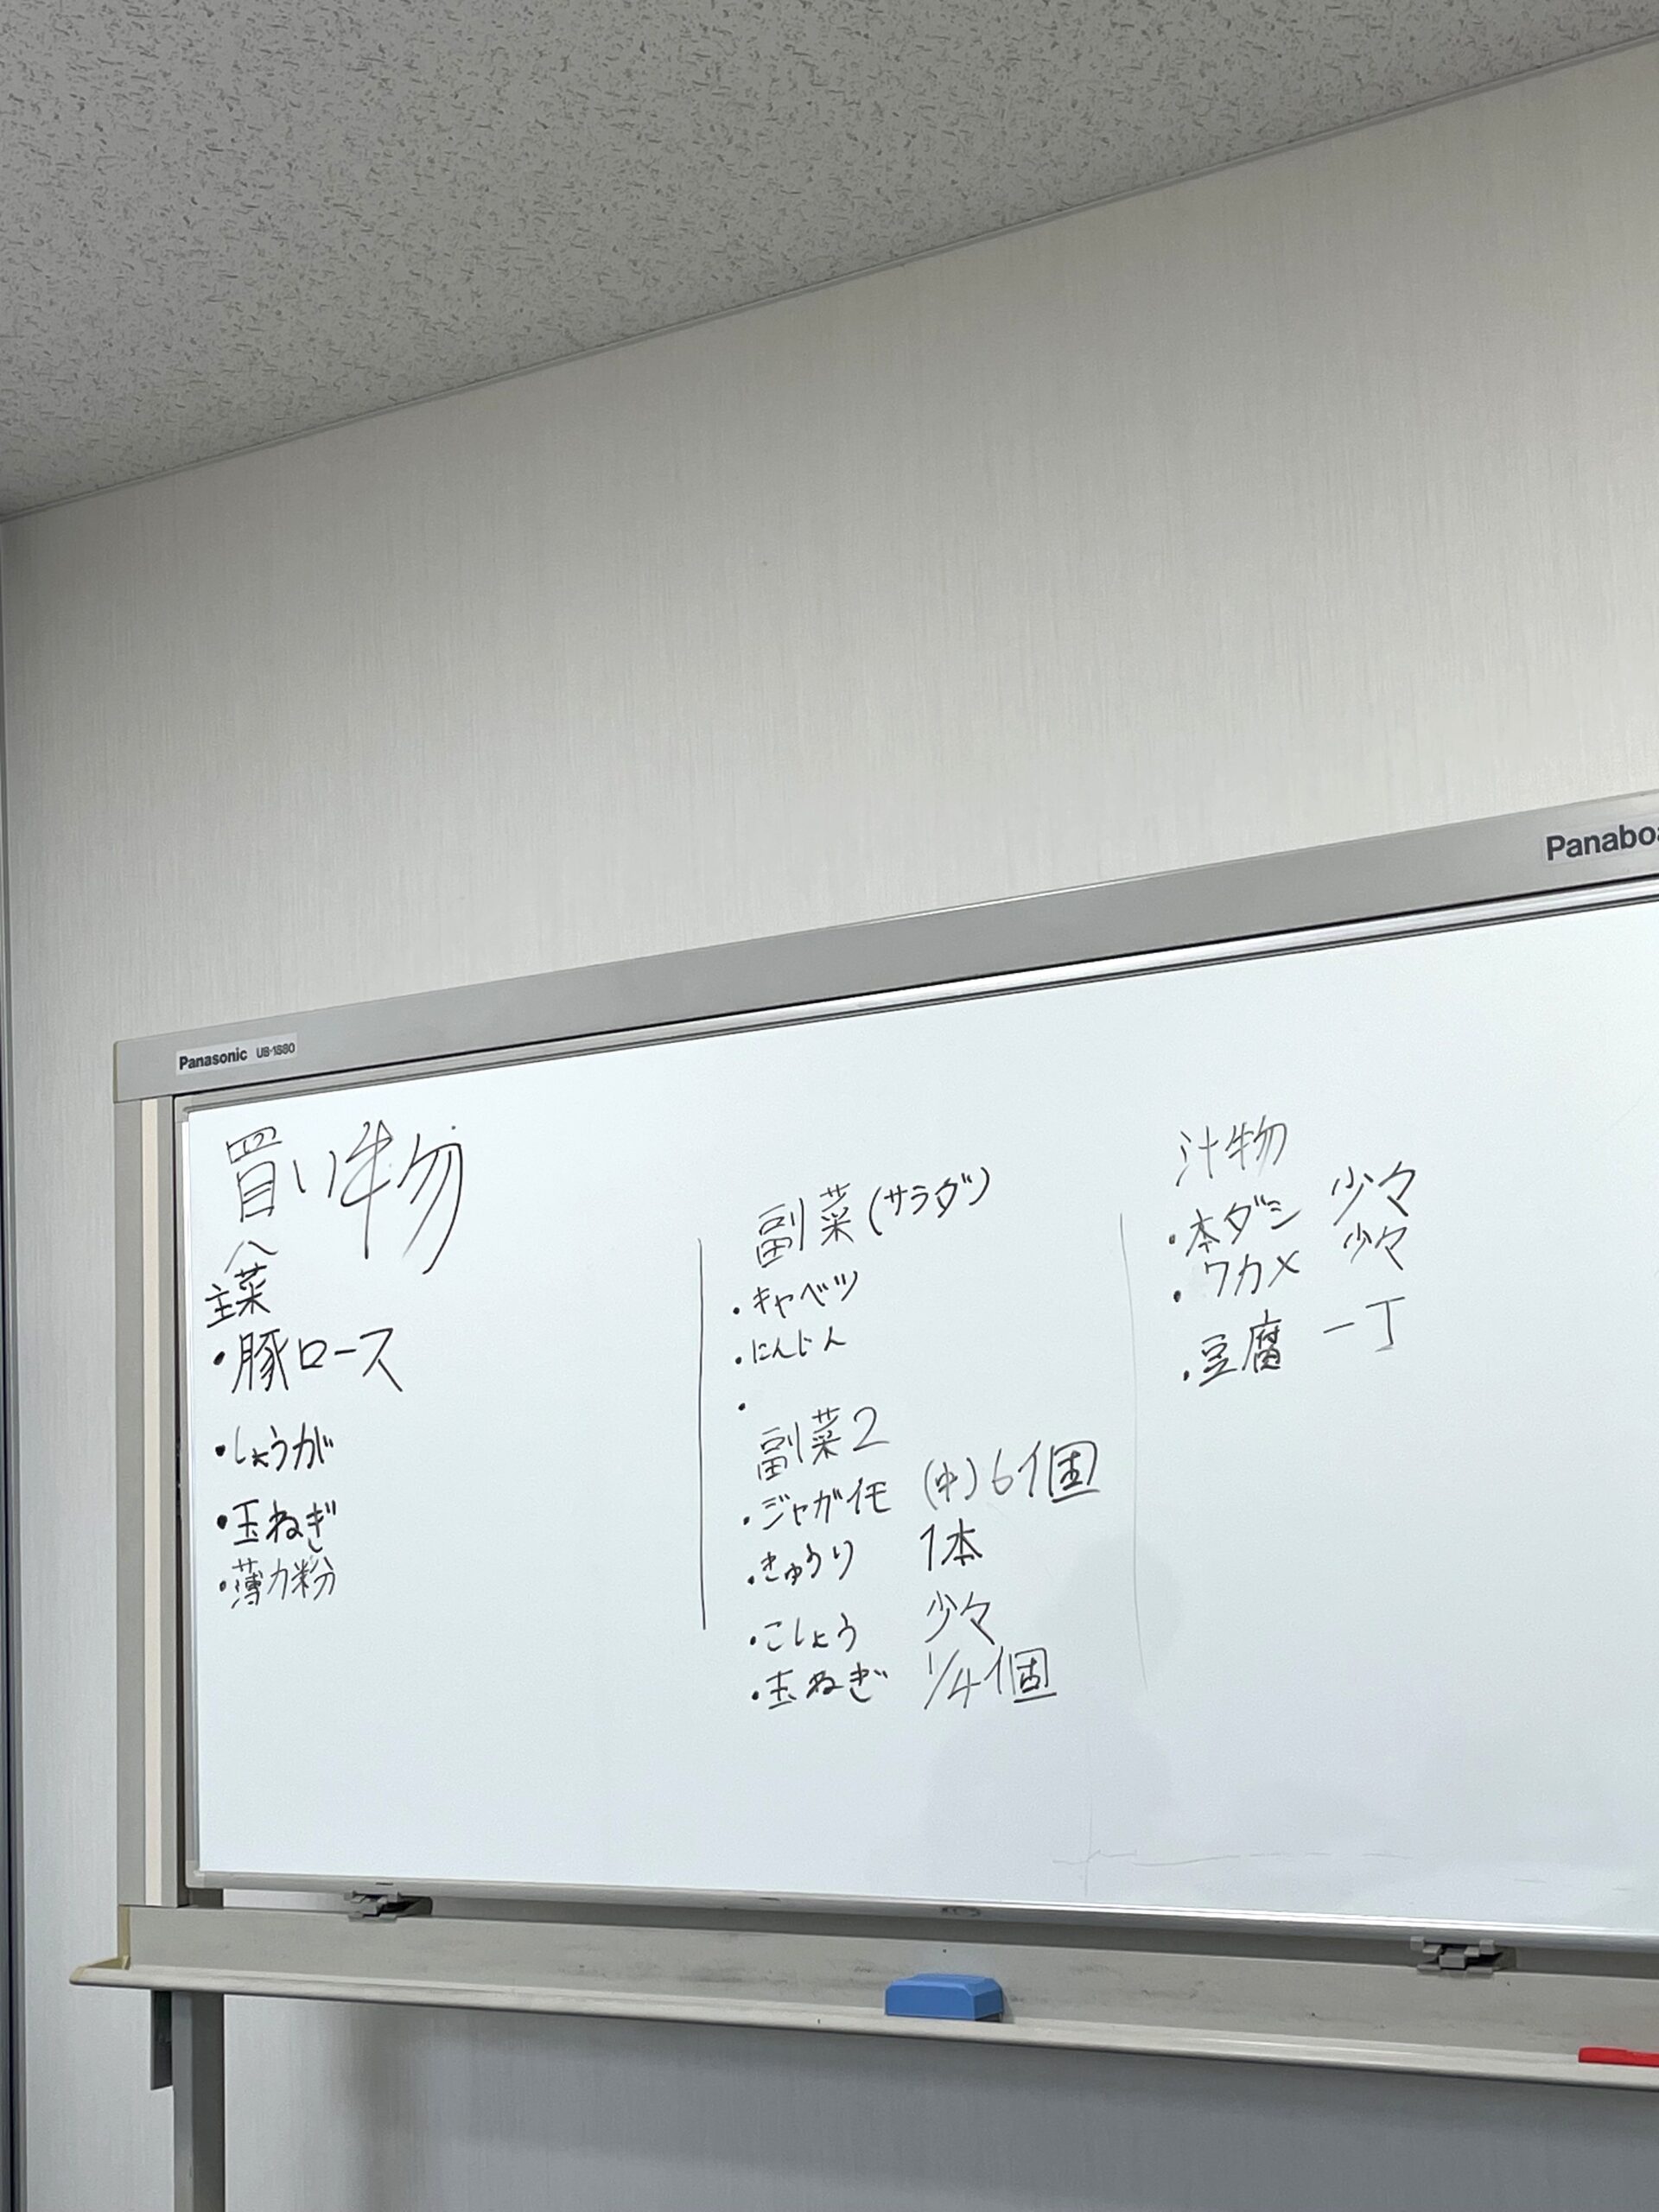 Panaboa
Panasonic UB-1880
買い物
主菜
・豚ロース
・しょうが
・玉ねぎ
・薄力粉
副菜(サラダ)
・キャベツ
・にんじん
・
副菜2
・ジャガイモ (中)6個
・きゅうり 1本
・こしょう 少々
・玉ねぎ 1/4個
汁物
・本ダシ 少々
・ワカメ 少々
・豆腐 一丁